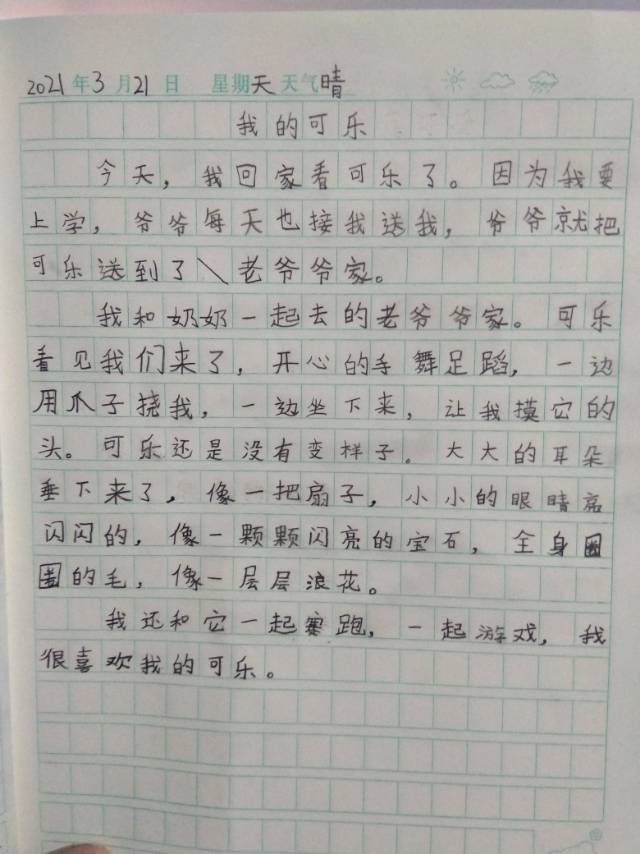 2021年3月21日 星期天天气晴
我的可乐
今天，我回家看可乐了。因为我要
上学，爷爷每天也接我送我，爷爷就把
可乐送到了老爷爷家。
我和奶奶一起去的老爷爷家。可乐
看见我们来了，开心的手舞足蹈，一边
用爪子挠我，一边坐下来，让我摸它的
头。可乐还是没有变样子。大大的耳朵
垂下来了，像一把扇子，小小的眼睛亮
闪闪的，像一颗颗闪亮的宝石，全身圈
圈的毛，像一层层浪花。
我还和它一起赛跑，一起游戏，我
很喜欢我的可乐。